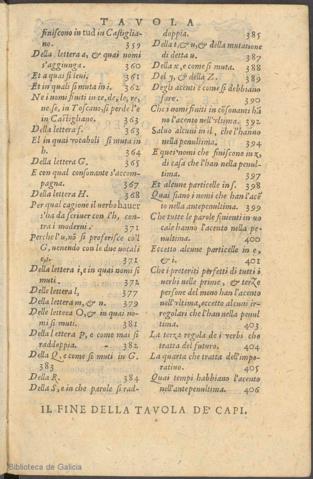 TAVOLA
finiscono in tud in Castiglia-
no. 359
Della lettera a, e quai nomi
s'aggiunga. 360
Et a quai si leui. 361
Et in quali si muta in i. 362
Ne i nomi finiti in te, de, le, re,
ne, se, in Toscano, si perde l'e
in Castigliano. 363
Della lettera f. 363
Et in quai vocaboli si muta in
h. 364
Della lettera G. 365
E con qual consonante s'accom-
pagna. 367
Della lettera H. 368
Per qual cagione il verbo hauer
s'ha da scriuer con l'h, con-
tra i moderni. 371
Perche l'u, nō si proferisce cōl
G, uenendo con le due uocali
371
Della lettera i, e in quai nomi si
muti. 372
Della lettera l, 377
Della lettera m, & n. 379
Delle lettera O, & in quai no-
mi si muti. 381
Della lettera p, e come mai si
raddoppia. 382
Della Q. e come si muti in G.
383
Della R. 384
Della S, e in che parole si rad-
doppia. 385
Della t, & u, & della mutatione
di detta u. 387
Della x, e come si muta. 388
Del y, & della Z. 389
Degli acenti e come si debbiano
fare. 390
Che i nomi finiti in cōsonanti hā
no l'acento nell'vltima. 392
Saluo alcuni in il, che l'hanno
nella penultima. 394
E quei nomi che finiscono in z,
di casa che l'han nella penul-
tima. 397
Et alcune particelle in s. 398
Quai siano i nomi che han l'acē
to nella antepenultima. 399
Che tutte le parole finienti in uo
cale hanno l'acento nella pe-
nultima. 400
Eccetto alcune particelle in e,
& i. 401
Che i preteriti perfetti di tutti i
verbi nelle prime, & terze
persone del meno han l'acento
nell'vltima, eccetto alcuni ir-
regolari che l'han nella penul
tima. 403
La terza regola de i verbi che
tratta del futuro. 404
La quarta che tratta dell'impe-
ratiuo. 405
Quai tempi habbiano l'acento
nell'antepenultima. 406
IL FINE DELLA TAVOLA DE' CAPI.
Biblioteca de Galicia